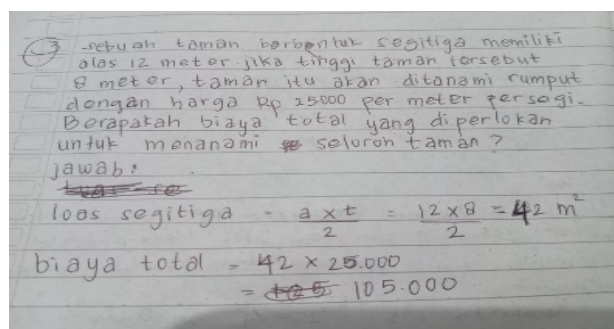 3 sebuah taman berbentuk segitiga memiliki
alas 12 meter. jika tinggi taman tersebut
8 meter, taman itu akan ditanami rumput
dengan harga Rp 25.000 per meter persegi.
Berapakah biaya total yang diperlokan
untuk menanami seloroh taman?
jawab:
loas segitiga = a x t / 2 = 12 x 8 / 2 = 42 m²
biaya total = 42 x 25.000
= 105.000